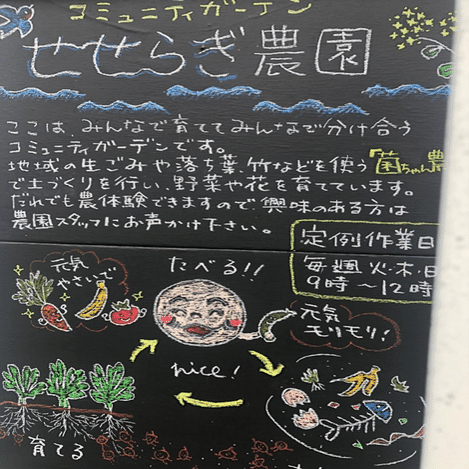 コミュニティガーデン
せせらぎ農園
ここは、みんなで育ててみんなで分け合う
コミュニティガーデンです。
地域の生ごみや落ち葉、竹などを使う「菌ちゃん農
で土づくりを行い、野菜や花を育てています。
だれでも農体験できますので興味のある方は
農園スタッフにお声かけ下さい。
定例作業日
毎週火・木・日
9時〜12時
元気
やさいで
たべる!!
元気
モリモリ!
nice!
育てる